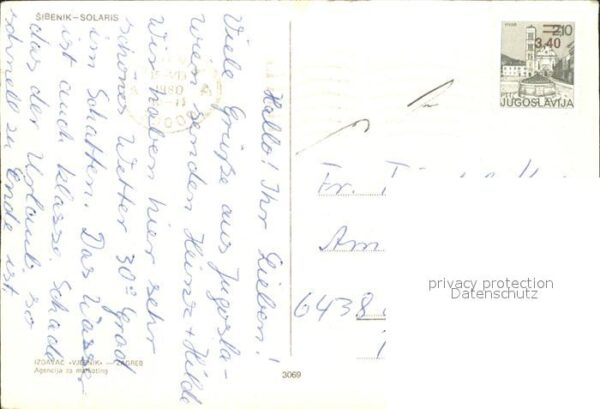 ŠIBENIK—SOLARIS
Hallo! Ihr Lieben!
Viele Grüße aus Jugosla-
wien senden Heinz + Hilde
Wir haben hier sehr
schönes Wetter 30° Grad
im Schatten. Das Wasser
ist auch klasse. Schade
das der Urlaub so
schnell zu Ende ist
IZDAVAČ »VJESNIK« — ZAGREB
Agencija za marketing
3069
1980
2,10
3,40
JUGOSLAVIJA
Fr.
Am
6438
privacy protection
Datenschutz